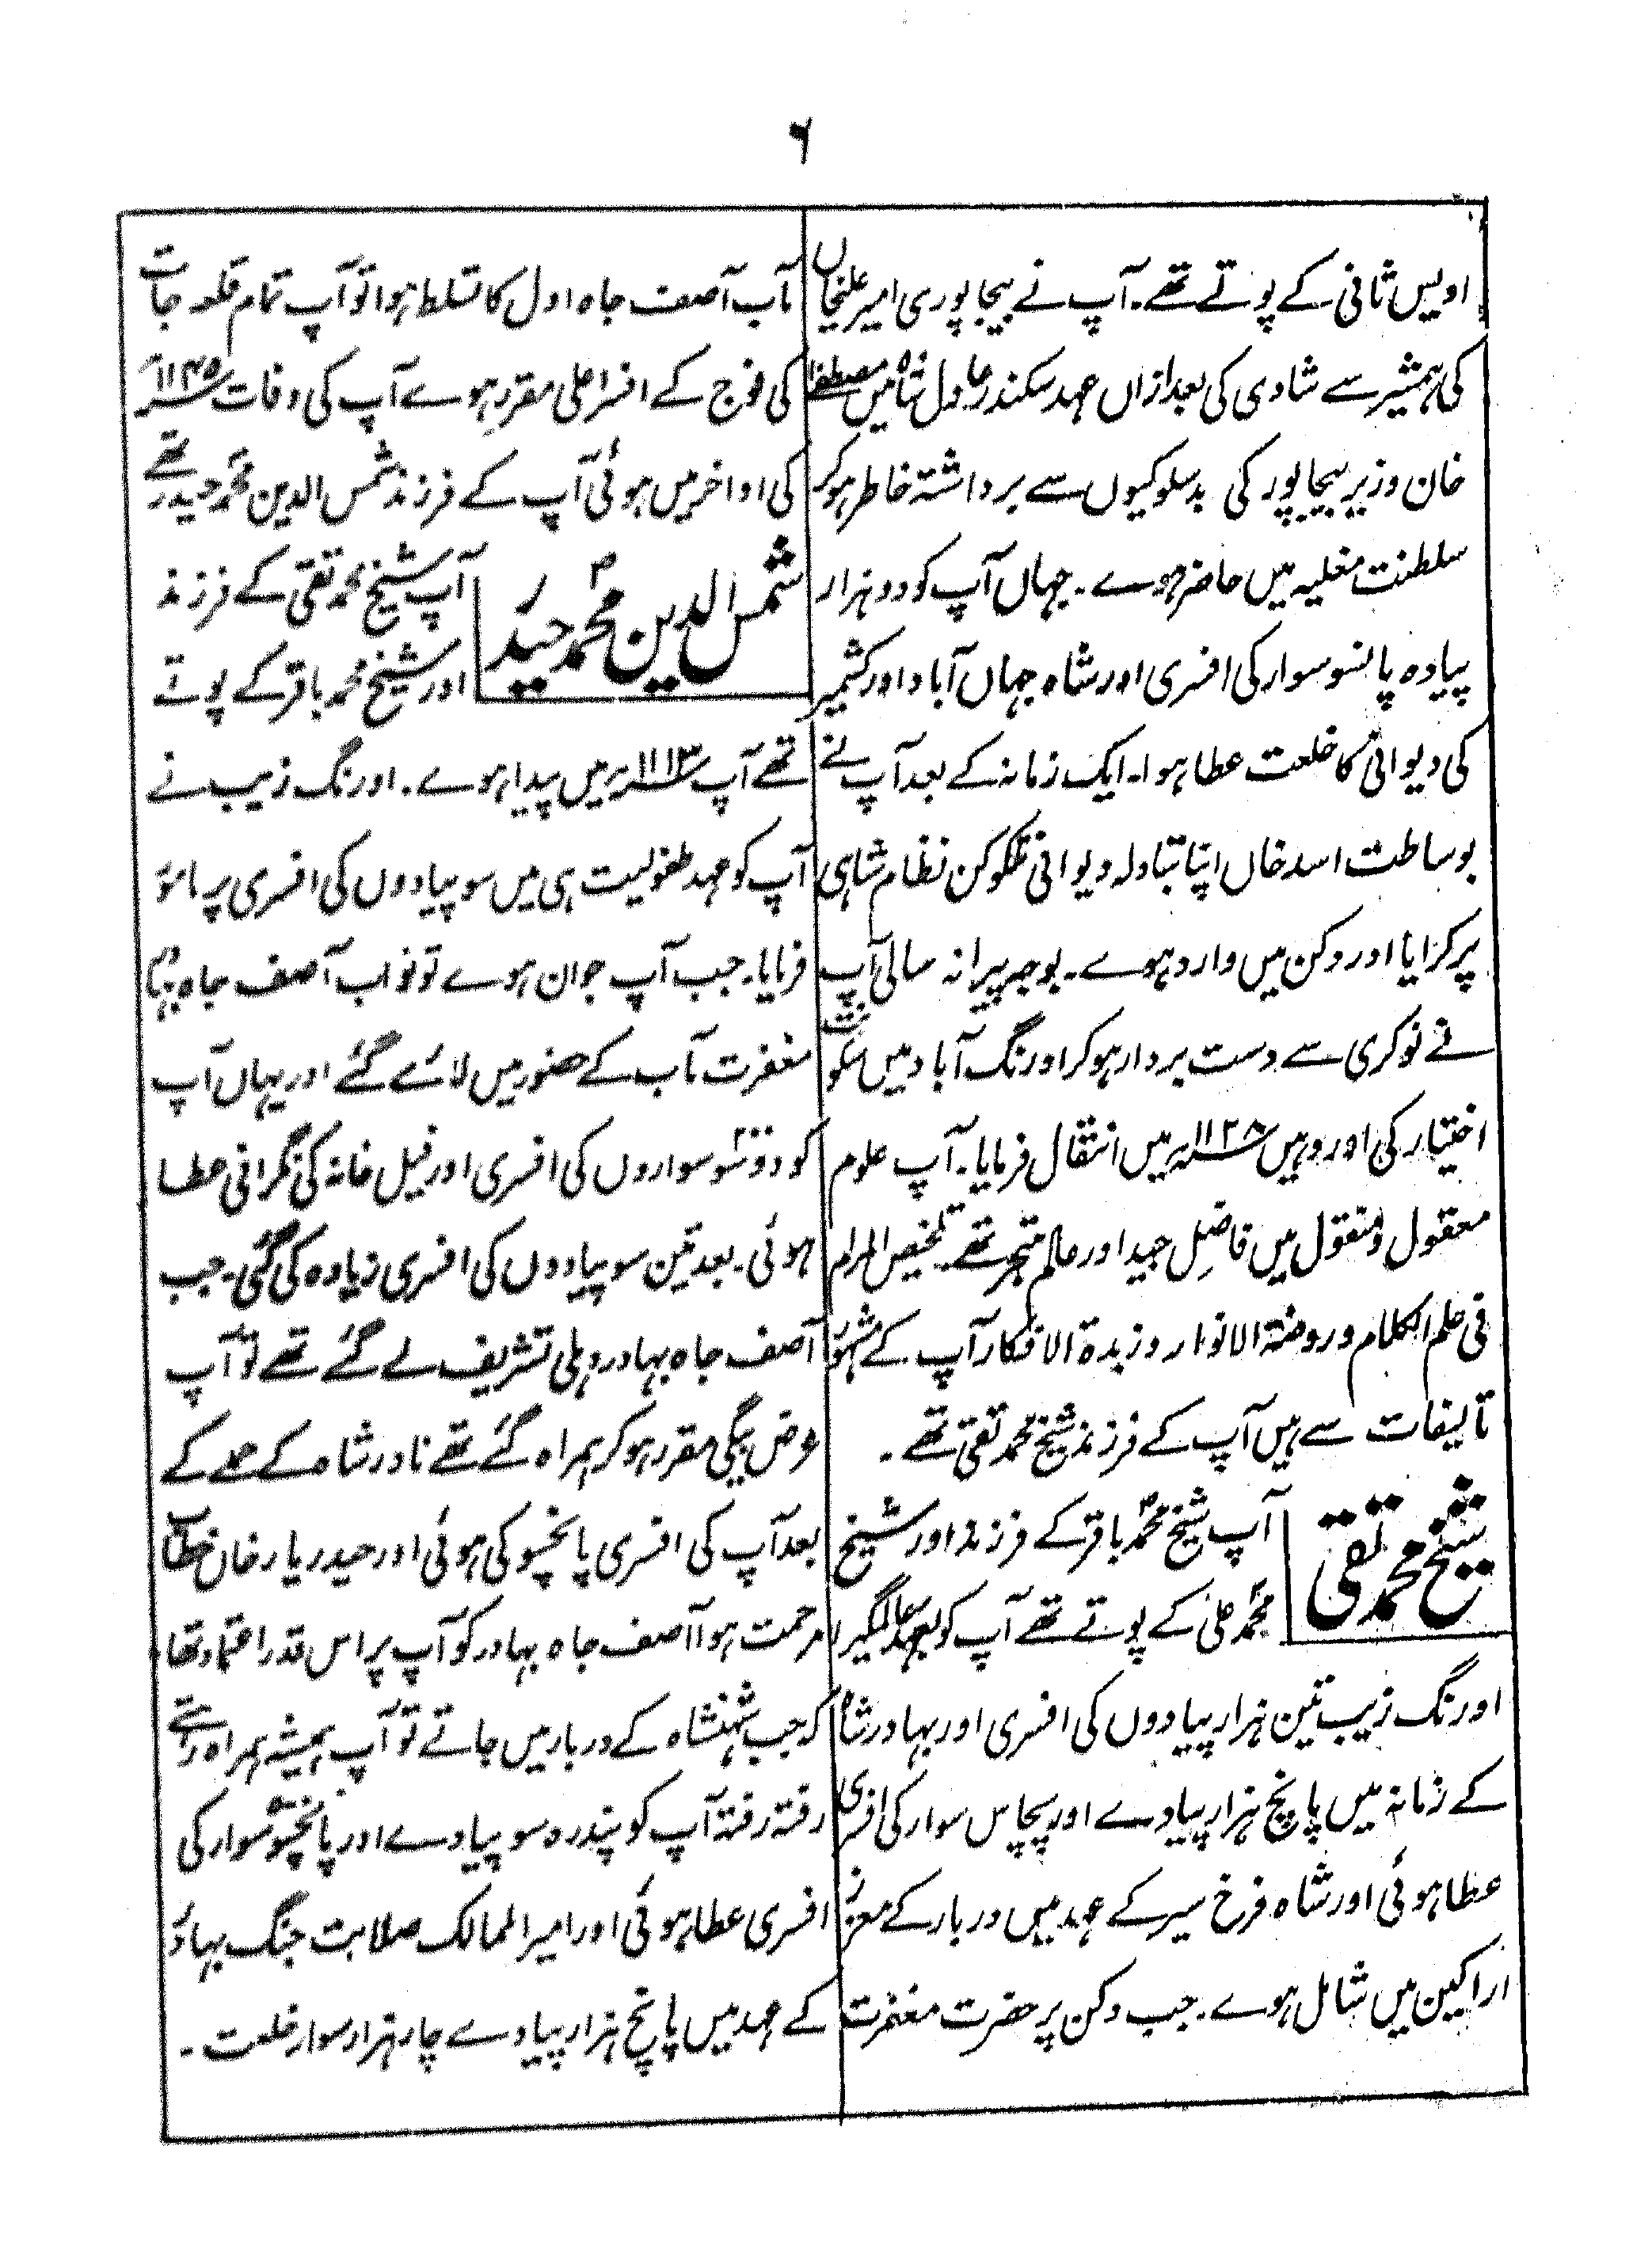 ۶
اویس ثانی کے پوتے تھے۔ آپ نے بیجاپوری امیر علیخاں
کی ہمشیر سے شادی کی بعدازاں عہد سکندر عادل شاہ میں مصطفےٰ
خان وزیر بیجاپور کی بدسلوکیوں سے برداشتہ خاطر ہوکر
سلطنت مغلیہ میں حاضر ہوے۔ جہاں آپ کو دو ہزار
پیادہ پانسو سوار کی افسری اور شاہ جہاں آباد اور کشمیر
کی دیوانی کا خلعت عطا ہوا۔ ایک زمانہ کے بعد آپ نے
بوساطت اسد خاں اپنا تبادلہ دیوانی تلکوکن نظام شاہی
پر کرایا اور دکن میں وارد ہوے۔ بوجہ پیرانہ سالی آپ
نے نوکری سے دست بردار ہوکر اورنگ آباد میں سکونت
اختیار کی اور وہیں ۱۱۲۸ھ میں انتقال فرمایا۔ آپ علوم
معقول و منقول میں فاضلِ جید اور عالم متبحر تھے۔ تلخیص المرام
فی علم الکلام و روضۃ الانوار و زبدۃ الافکار آپ کے مشہور
تالیفات سے ہیں آپ کے فرزند شیخ محمد تقی تھے۔
شیخ محمد تقی
آپ شیخ محمد باقر کے فرزند اور شیخ
محمد علی کے پوتے تھے آپ کو بعہد عالمگیر
اورنگ زیب تین ہزار پیادوں کی افسری اور بہادر شاہ
کے زمانہ میں پانچ ہزار پیادے اور پچاس سوار کی افسری
عطا ہوئی اور شاہ فرخ سیر کے عہد میں دربار کے معزز
اراکین میں شامل ہوے۔ جب دکن پر حضرت مغفرت
مآب آصف جاہ اول کا تسلط ہوا تو آپ تمام قلعہ جات
کی فوج کے افسر اعلی مقرر ہوے آپ کی وفات ۱۱۴۵ھ
کی اواخر میں ہوئی آپ کے فرزند شمس الدین محمد حیدر تھے
شمس الدین محمد حیدر
آپ شیخ محمد تقی کے فرزند
اور شیخ محمد باقر کے پوتے
تھے آپ ۱۱۱۳ھ میں پیدا ہوے۔ اورنگ زیب نے
آپ کو عہد طفولیت ہی میں سو پیادوں کی افسری پر مامور
فرمایا۔ جب آپ جوان ہوے تو نواب آصف جاہ بہادر
مغفرت مآب کے حضور میں لائے گئے اور یہاں آپ
کو دو سو سواروں کی افسری اور فیل خانہ کی نگرانی عطا
ہوئی۔ بعد تین سو پیادوں کی افسری زیادہ کی گئی۔ جب
آصف جاہ بہادر دہلی تشریف لے گئے تھے تو آپ
عرض بیگی مقرر ہوکر ہمراہ گئے تھے نادر شاہ کے حملے کے
بعد آپ کی افسری پانچسو کی ہوئی اور حیدر یار خان خطاب
مرحمت ہوا آصف جاہ بہادر کو آپ پر اس قدر اعتماد تھا
کہ جب شہنشاہ کے دربار میں جاتے تو آپ ہمیشہ ہمراہ رہتے
رفتہ رفتہ آپ کو پندرہ سو پیادے اور پانچسو سوار کی
افسری عطا ہوئی اور امیر الممالک صلابت جنگ بہادر
کے عہد میں پانچ ہزار پیادے چار ہزار سوار خلعت۔